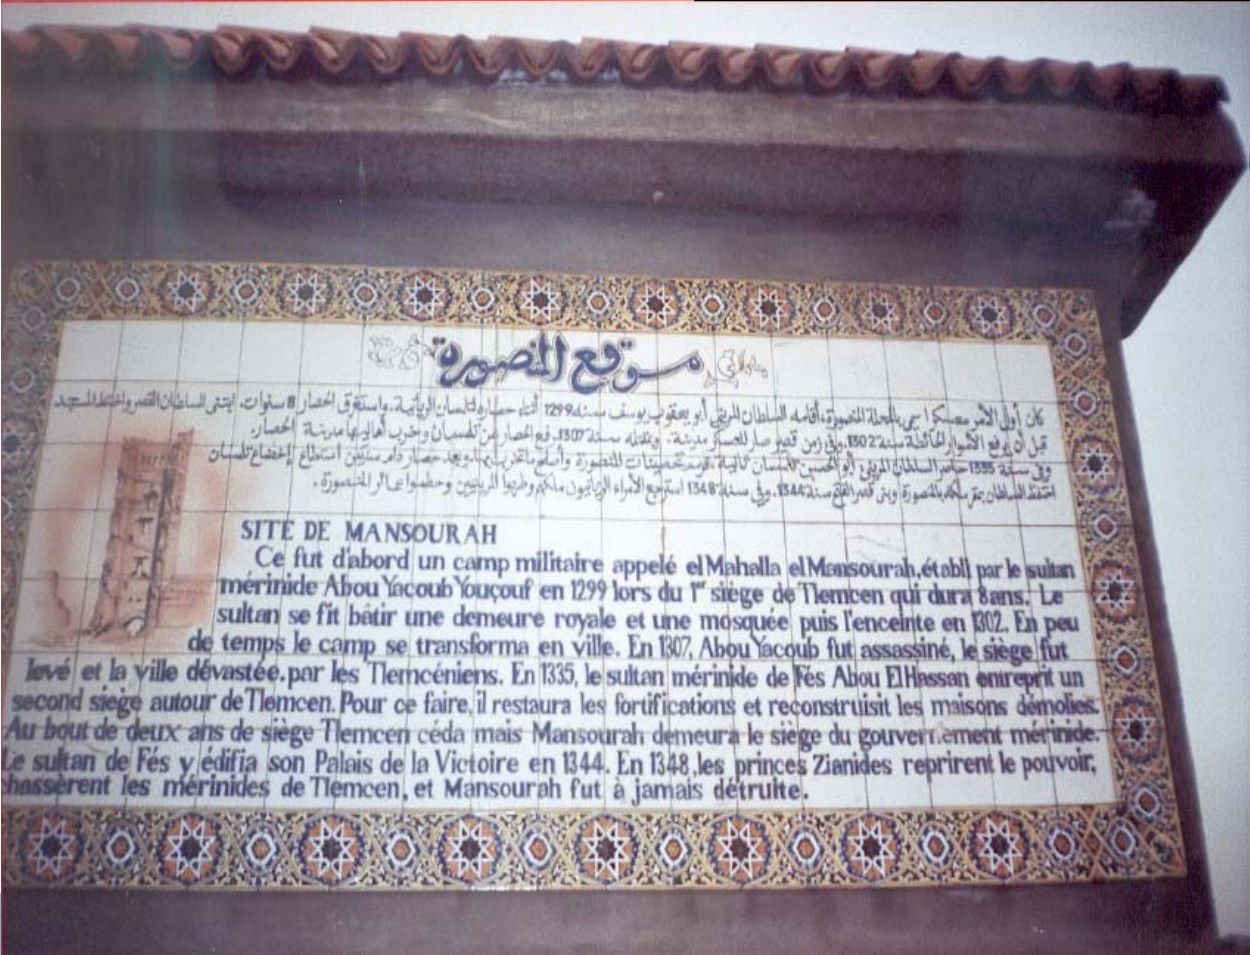 موقع المنصورة
كان أول الأمر معسكرا سمي بالمحلة المنصورة، أقامه السلطان المريني أبو يعقوب يوسف سنة 1299 أثناء حصاره لتلمسان الزيانية، واستغرق الحصار 8 سنوات. ابتنى السلطان القصر واختط المسجد
قبل أن يرفع الأسوار المحافظة سنة 1302. وفي زمن قصير صار المعسكر مدينة. وبمقتله سنة 1307، رفع الحصار عن تلمسان وخرب أهاليها مدينة الحصار.
وفي سنة 1335 حاصر السلطان المريني أبو الحسن تلمسان ثانية، تحصينات المنصورة وأصلح ما تخرب وبعد حصار دام سنتين استطاع إخضاع تلمسان
احتفظ السلطان بمقر ملكه بالمنصورة وبنى قصر الفتح سنة 1344. وفي سنة 1348 استرجع الأمراء الزيانيون ملكهم وطردوا المرينيين وحطموا عمائر المنصورة.
SITE DE MANSOURAH
Ce fut d'abord un camp militaire appelé el Mahalla el Mansourah, établi par le sultan
mérinide Abou Yacoub Youçouf en 1299 lors du 1er siège de Tlemcen qui dura 8 ans. Le
sultan se fit bâtir une demeure royale et une mosquée puis l'enceinte en 1302. En peu
de temps le camp se transforma en ville. En 1307, Abou Yacoub fut assassiné, le siège fut
levé et la ville dévastée, par les Tlemcéniens. En 1335, le sultan mérinide de Fés Abou El Hassan entreprit un
second siège autour de Tlemcen. Pour ce faire, il restaura les fortifications et reconstruisit les maisons démolies.
Au bout de deux ans de siège Tlemcen céda mais Mansourah demeura le siège du gouvernement mérinide.
Le sultan de Fés y édifia son Palais de la Victoire en 1344. En 1348, les princes Zianides reprirent le pouvoir,
chassèrent les mérinides de Tlemcen, et Mansourah fut à jamais détruite.